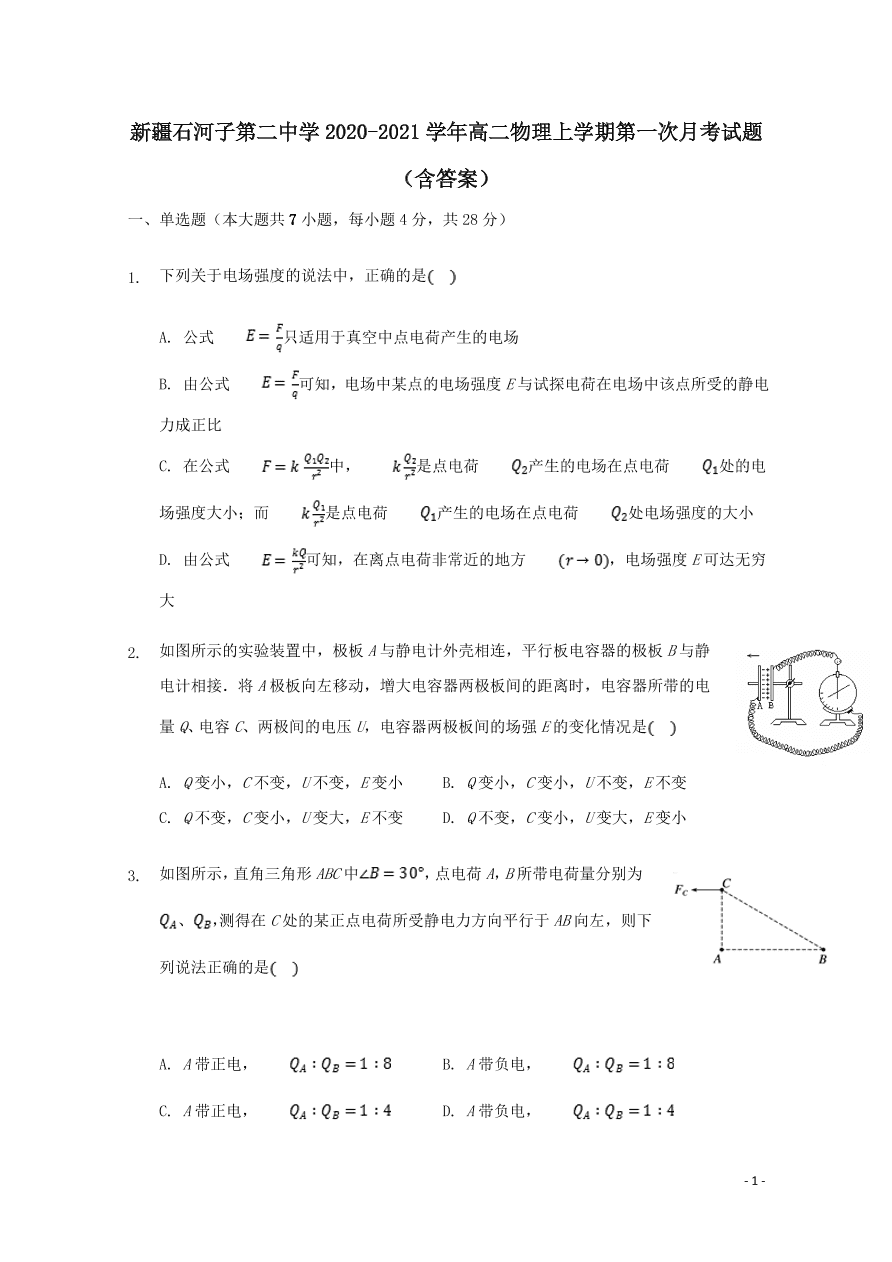 新疆石河子第二中学 2020-2021 学年高二物理上学期第一次月考试题
（含答案）
一、单选题（本大题共 7 小题，每小题 4 分，共 28 分）
1. 下列关于电场强度的说法中，正确的是(  )
A. 公式 E = F/q 只适用于真空中点电荷产生的电场
B. 由公式 E = F/q 可知，电场中某点的电场强度 E 与试探电荷在电场中该点所受的静电
力成正比
C. 在公式 F = k Q₁Q₂/r² 中， k Q₂/r² 是点电荷 Q₂产生的电场在点电荷 Q₁处的电
场强度大小；而 k Q₁/r² 是点电荷 Q₁产生的电场在点电荷 Q₂处电场强度的大小
D. 由公式 E = kQ/r² 可知，在离点电荷非常近的地方 (r → 0)，电场强度 E 可达无穷
大
2. 如图所示的实验装置中，极板 A 与静电计外壳相连，平行板电容器的极板 B 与静
电计相接．将 A 极板向左移动，增大电容器两极板间的距离时，电容器所带的电
量 Q、电容 C、两极间的电压 U，电容器两极板间的场强 E 的变化情况是(  )
A B
A. Q 变小，C 不变，U 不变，E 变小 B. Q 变小，C 变小，U 不变，E 不变
C. Q 不变，C 变小，U 变大，E 不变 D. Q 不变，C 变小，U 变大，E 变小
3. 如图所示，直角三角形 ABC 中∠B = 30°，点电荷 A，B 所带电荷量分别为
Q_A、Q_B，测得在 C 处的某正点电荷所受静电力方向平行于 AB 向左，则下
列说法正确的是(  )
F_C C
A B
A. A 带正电， Q_A : Q_B = 1 : 8 B. A 带负电， Q_A : Q_B = 1 : 8
C. A 带正电， Q_A : Q_B = 1 : 4 D. A 带负电， Q_A : Q_B = 1 : 4
- 1 -